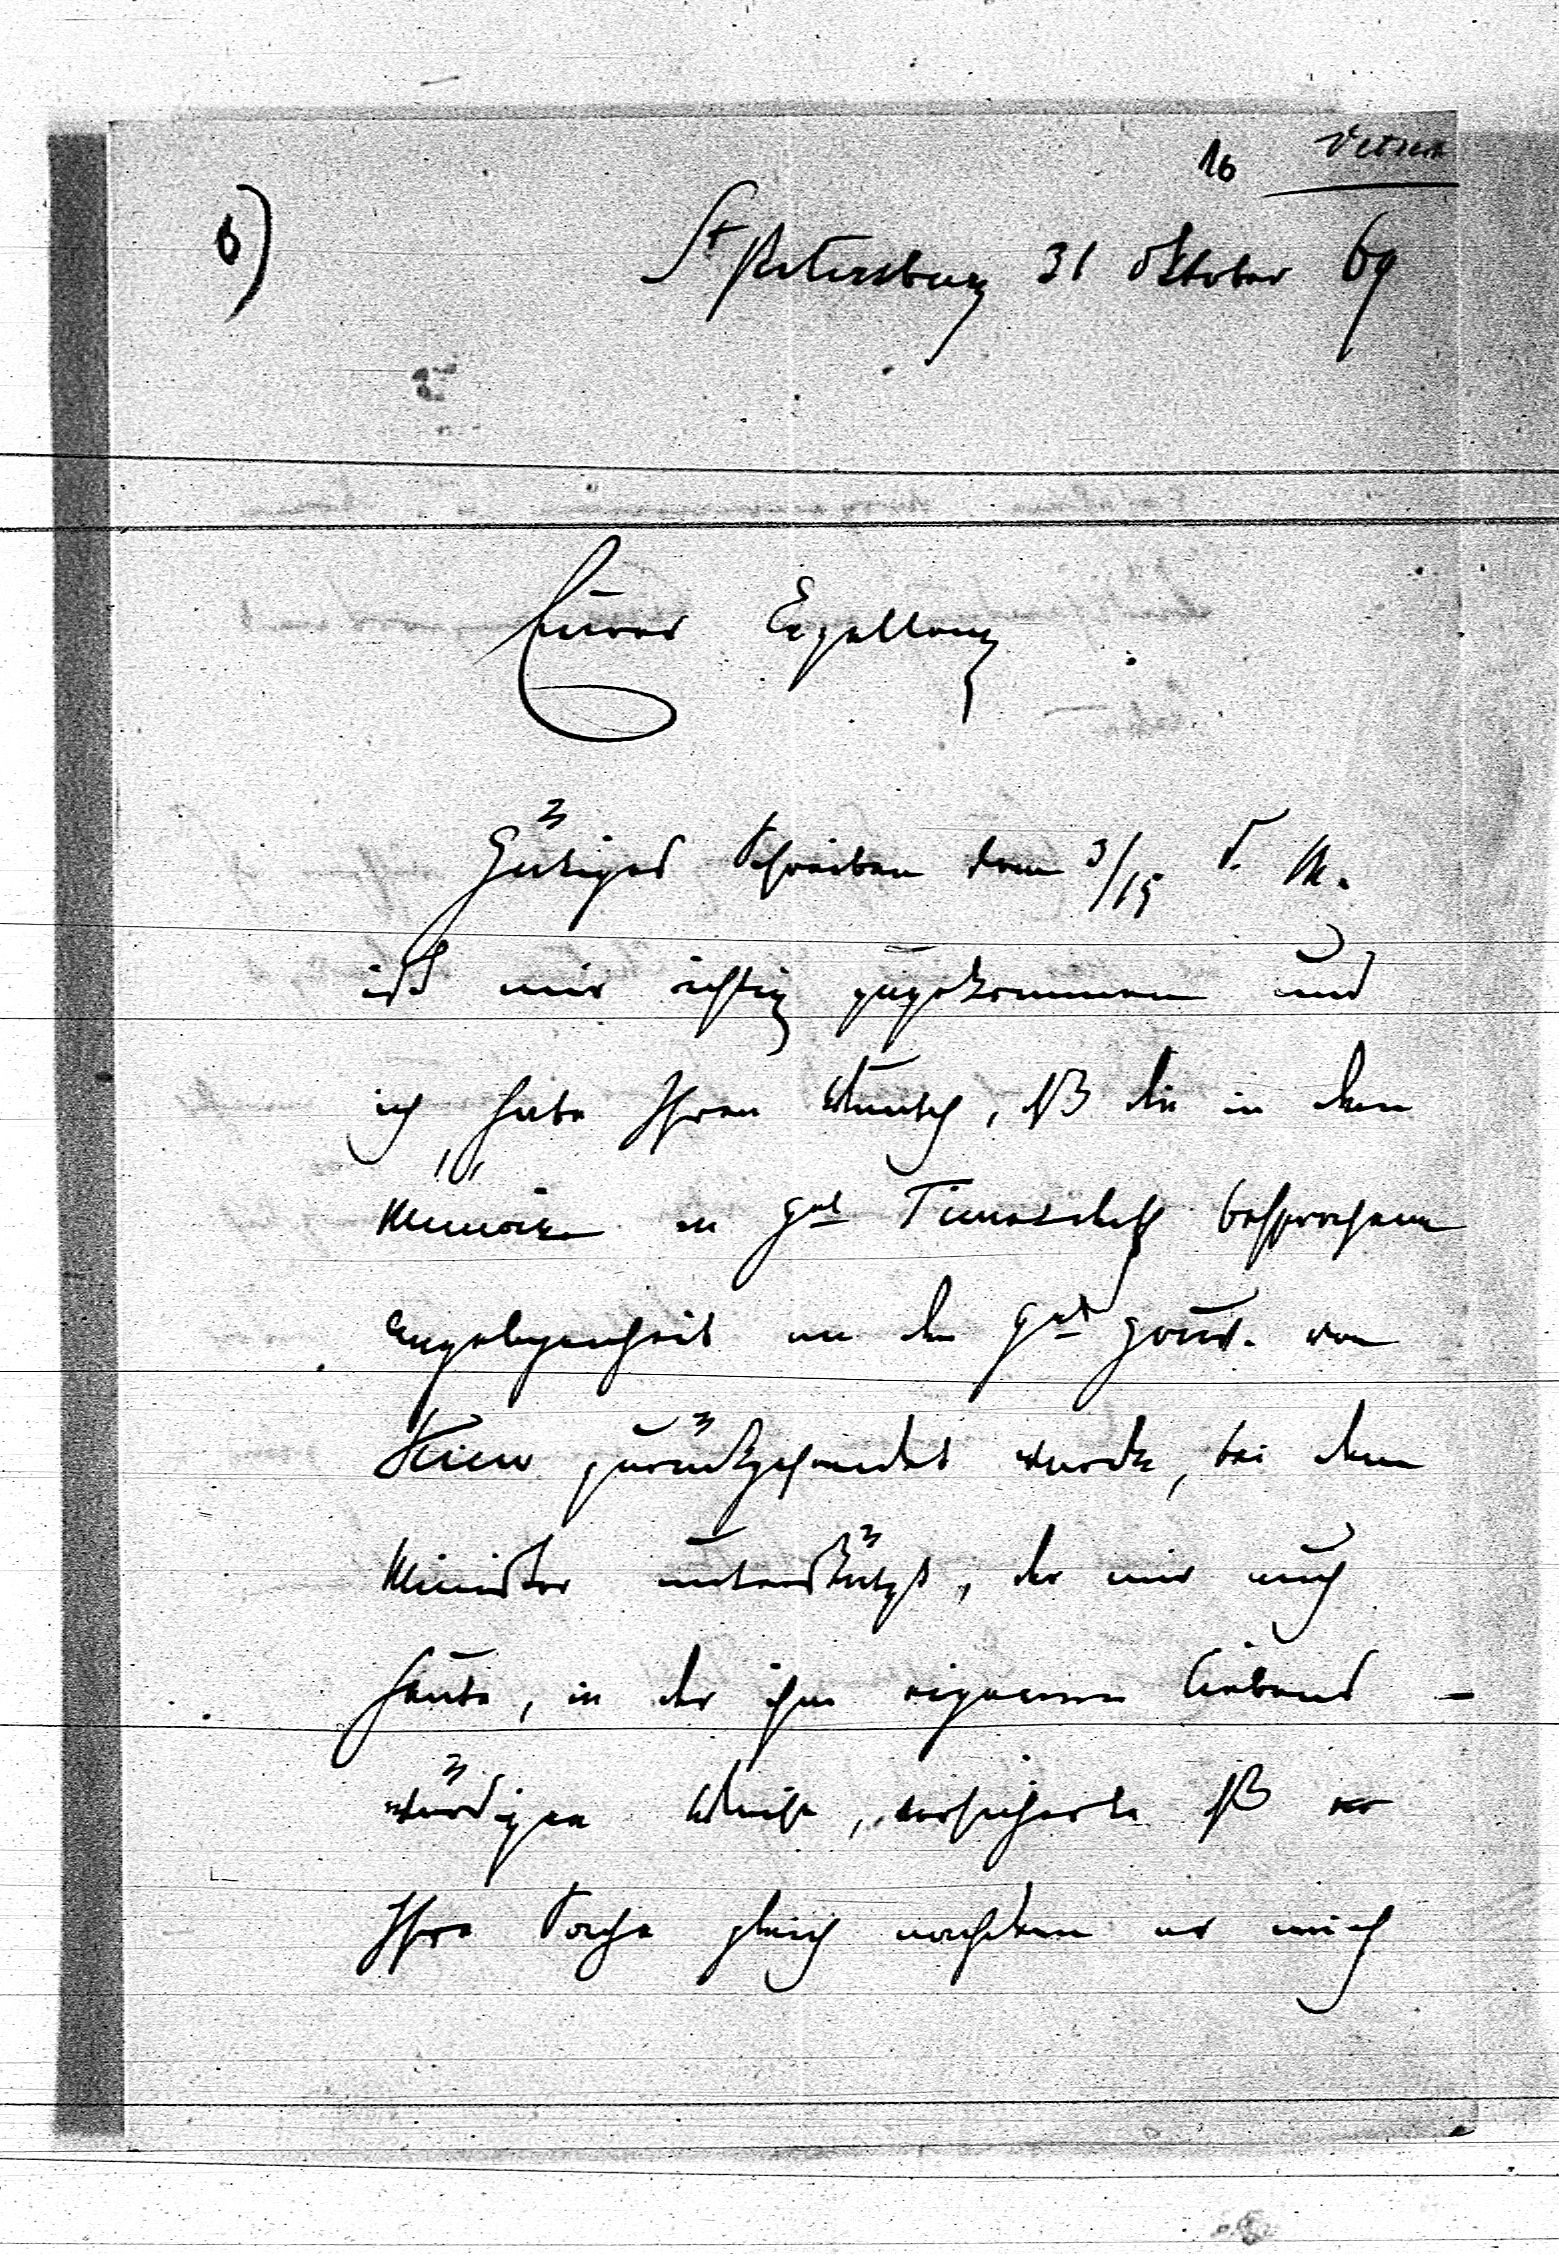 16 Vetsera
6)
St Petersburg 31 Oktober 69
Eurer Exzellenz
gütiges Schreiben vom 3/15 d. M.
ist mir richtig zugekommen und
ich habe Ihren Wunsch, dß die in dem
Memoire an Gnl Timascheff besprochene
Angelegenheit an den Gnl Gouv. von
Kiew zurückgesendet werde, bei dem
Minister unterstützt, der mir auch
heute, in der ihm eigenen liebens-
würdigen Weise, versicherte dß er
Ihre Sache gleich nachdem er mich